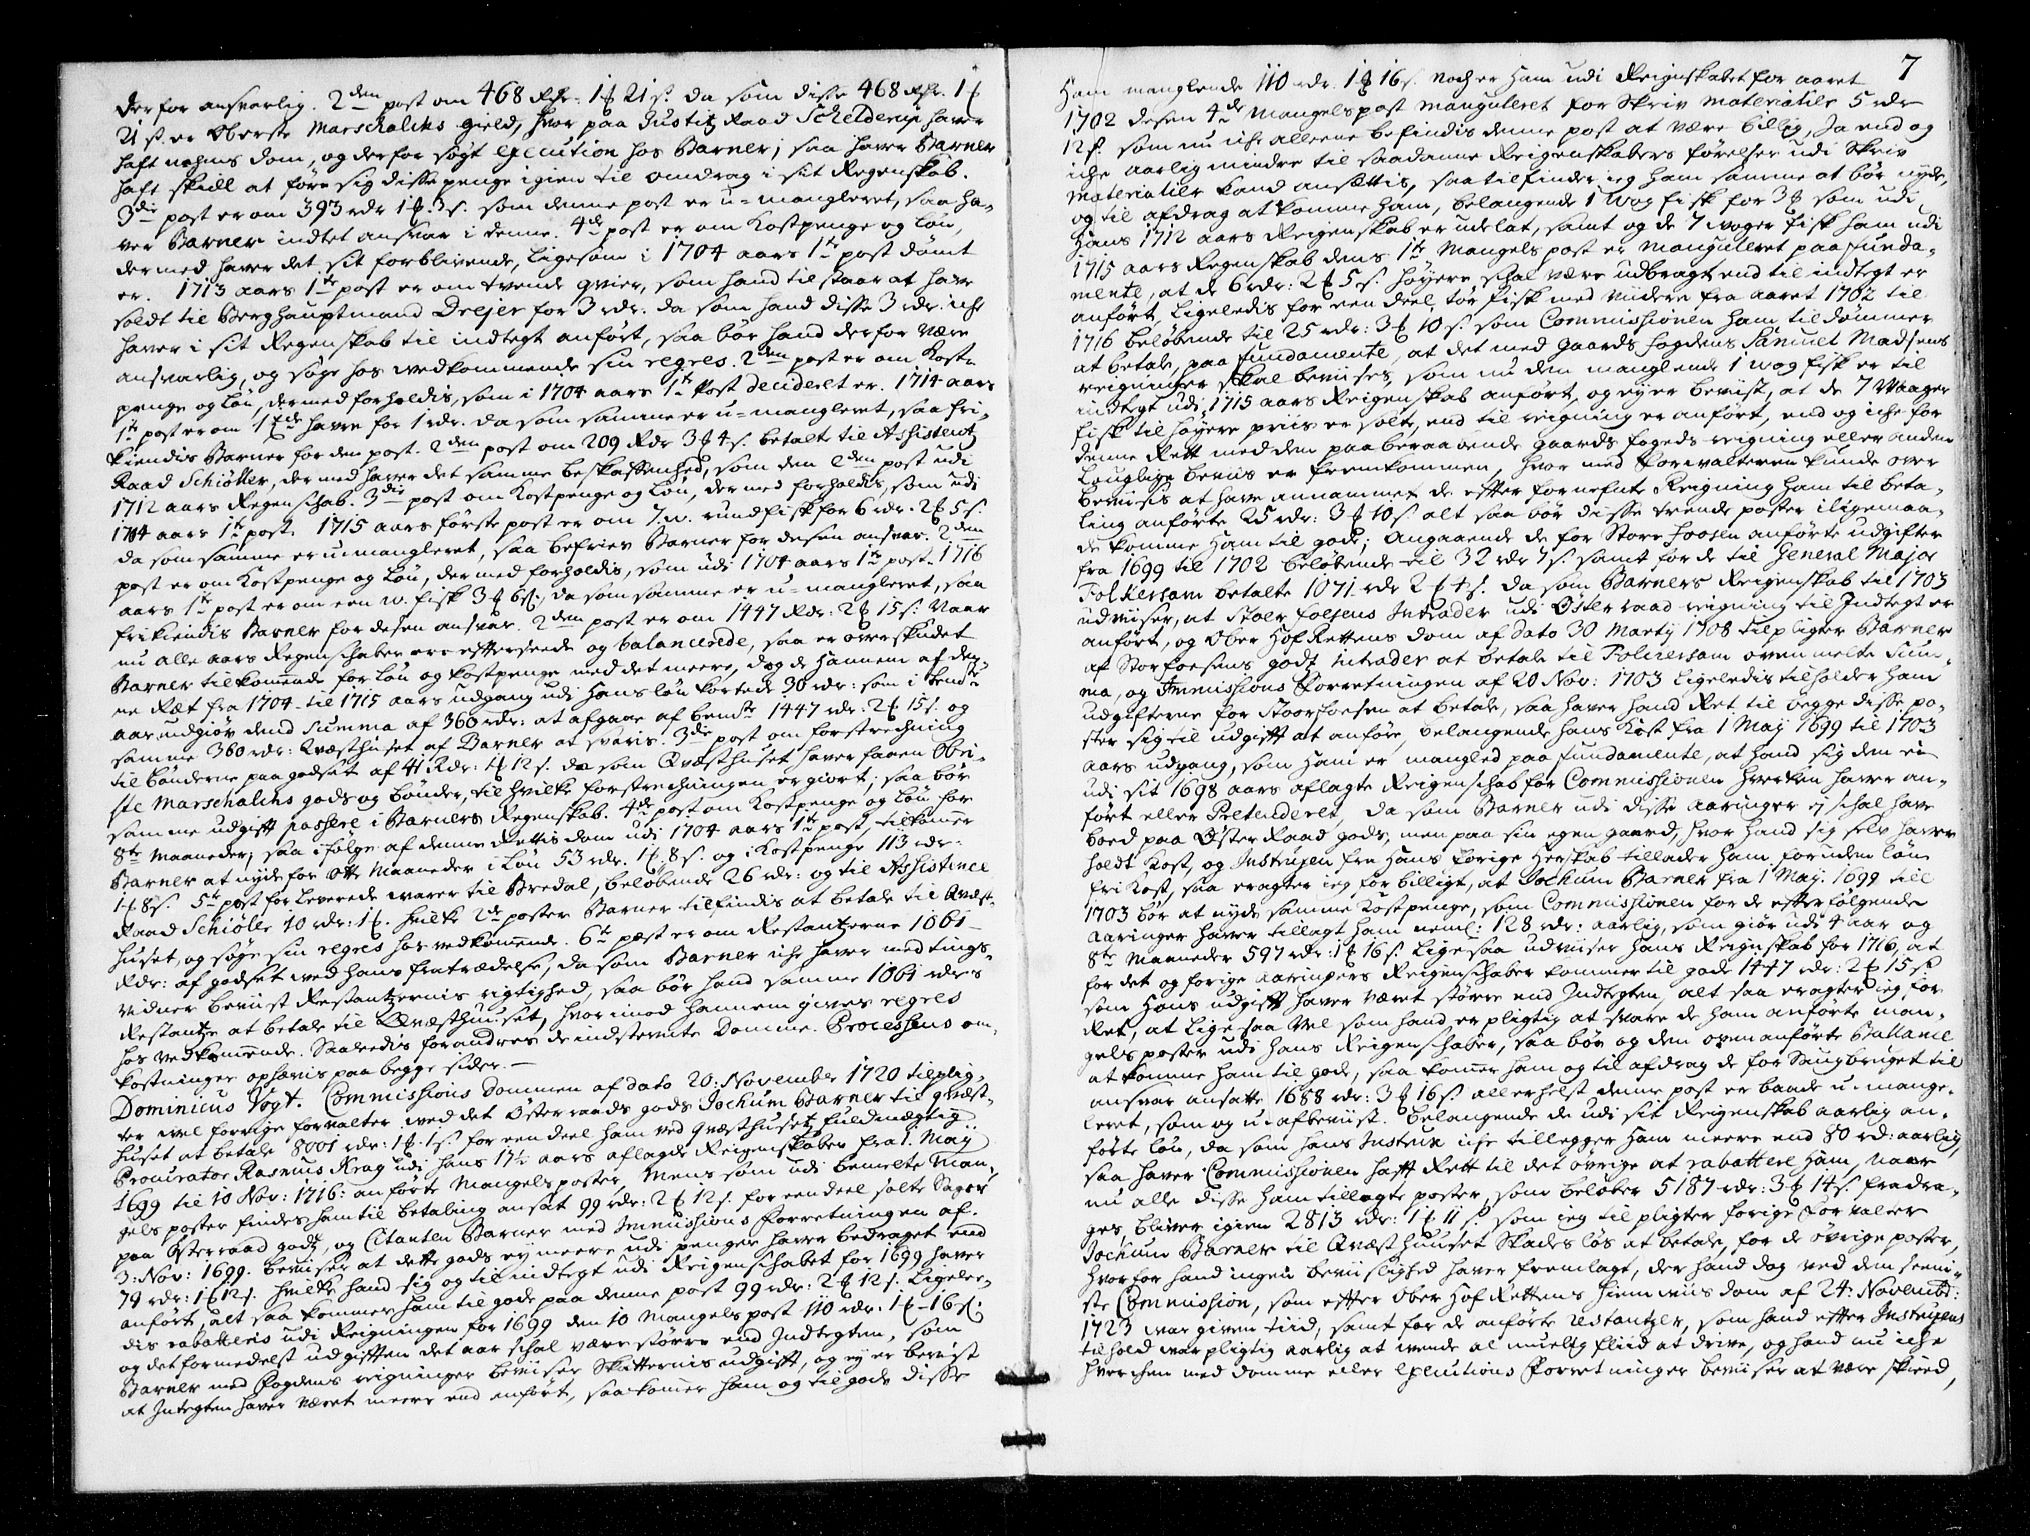 derfor ansvarlig. 2den post om 468 Rdr. 1 ₰ 21 s. da som disse 468 Rdr. 1 ₰
21 s. er Oberste Marschalchs gield, hvor paa Justitz Raad Schelderup haver
haft nahms dom, og derfor søgt execution hos Barner; saa haver Barner
haft skiell at føre sig disse penge igien til omdrag i sit Regenskab.
3die post er om 393 rdr 1 ₰. 3 s. som denne post er u=mangleret, saa ha-
ver Barner indtet ansvar i denne. 4de post er om Kostpenge og Løn,
der med haver det sit forblivende, Ligesom i 1704 aars 1te post dømt
er. 1713 aars 1te post er om tvende qvier, som hand tilstaar at have
soldt til Berghauptmand Drejer for 3 rdr. da som hand disse 3 rdr. iche
haver i sit Regenskab til indtegt anført, saa bør hand derfor være
ansvarlig, og søge hos vedkommende sin regres. 2den post er om Kost-
penge og Løn, dermed forholdis, som i 1704 aars 1te Post decideret er. 1714 aars
1te post er om 1 tde havre for 1 rdr. da som samme er u=mangleret, saa fri-
kiendis Barner for den post. 2den post om 209 Rdr 3 ₰ 4 s. betalt til Assistentz
Raad Schiøller, der med haver det samme beskaffenhed, som den 2den post udi
1712 aars Regenschab. 3die post om Kostpenge og Løn, der med forholdis, som udi
1704 aars 1te post. 1715 aars første post er om 7. w. rundfisk for 6 rdr. 2 ₰ 5 s.
da som samme er u-mangleret, saa befries Barner for desen ansvar. 2den
post er om Kostpenge og Løn, der med forholdis, som udi 1704 aars 1te post. 1716
aars 1te post er om een w. fisk 3 ₰ 6 s., da som samme er u-mangleret, saa
frikiendis Barner for desen ansvar. 2den post er om 1447 Rdr: 2 ₰ 15 s: Naar
nu alle aars Regenschaber ere efterseede og balancerede, saa er overskudet
Barner tilkommende for Løn og Kostpenge med det meere, dog de Hannem af den-
ne Ræt fra 1704 til 1715 aars udgang udi Hans løn kortede 30 rdr: som i bemte
aar udgiør dend Summa af 360 rdr: at afgaae af bemte 1447 rdr: 2 ₰ 15 s. og
samme 360 rdr: Qvæsthuset af Barner at svaris. 3die post om forstrechning
til bønderne paa godset af 41 Rdr: 1 ₰ 12 s. da som Qvæsthuset haver faaen Obri-
ste Marschalchs gods og bønder, til hvilke forstrechningen er giort; saa bør
samme udgift passere i Barners Regenskab. 4de post om Kostpenge og Løn for
8te Maaneder; saa ifølge af denne Rettis dom udi 1704 aars 1te post, tilkommer
Barner at nyde for Otte Maaneder i Løn 53 rdr. 1 ₰. 8 s. og i Kostpenge 113 rdr:
1 ₰. 8 s. 5te post for Leverede warer til Bredal, beløbende 26 rdr: og til Assistince
Raad Schiøller 10 rdr: 1 ₰. hvilke 2de poster Barner tilfindis at betale til Qvæst-
huset, og søge sin regres hos vedkommende. 6te post er om Restantzerne 1061
Rdr: af godset wed hans fratrædelse, da som Barner iche haver med tings-
vidner beviist Restantzernis rigtighed, saa bør hand samme 1061 rdrs
Restantze at betale til Qvæsthuuset, hvorimod hannem gives regres
hos vedkommende. Saaledis forandres de indstevnte Domme. Processens om-
kostninger ophævis paa begge sider. —
Dominicus Vogt. Commissions Dommen af dato 20: November 1720 tilplig-
ter vel forrige forvalter ved det Østeraads gods Jochum Barner til Qvæst-
huset at betale 8001 rdr: 1 ₰ 1 s. for een deel ham ved Qvæsthusetz fuldmægtig
Procurator Rasmus Krag udi hans 17½ aars aflagde Reigenskaber fra 1. May
1699 til 10 Nov: 1716: anførte Mangels poster, Mens som udi bemelte Man-
gels poster findes ham til betaling ansat 99 rdr: 2 ₰ 12 s. for een deel solte Sager
paa Østeraad godtz, og Citanten Barner med Immissions Forretningen af
3: Nov: 1699. beviser at dette gods ey meere udi penge haver bedraget end
79 rdr: 1 ₰ 12 s. hvilke hand sig og til indtegt udi Reigenschabet for 1699 haver
anført, alt saa kommer ham til gode paa denne post 99 rdr: 2 ₰ 12 s. Ligeler-
dis rabatteris udi Reigningen for 1699 den 10 Mangels post 110 rdr: 1 ₰ – 16 s:
og det formedelst udgifften det aar schal være større end Indtegten, som
Barner med Fogdens reigninger beviiser Skifternis udgift, og ey er bevist
at Indtegten haver været meere end anført, saa komer ham og til gode disse
7
Ham manglende 110 rdr. 1 ₰ 16 s. noch er Ham udi Reignskabet for aaret
1702 desen 4de Mangels post manguleret for Skriv materialier 5 rdr
12 s. som nu iche alleene befindis denne post at være billig, Ja end og
iche aarlig mindre til saadanne Reigenskabers førelser udi Skriv
materialier kand ansættis, saa tilfinder ieg ham samme at bør nyde,
og til afdrag at komme ham, belangende 1 Wog fisk for 3 ₰ som udi
Hans 1712 aars Reigenskab er udelat, samt og de 7 woger fisk ham udi
1715 aars Regenskab dens 1te Mangels post er manguleret paa funda-
mente, at de 6 rdr: 2 ₰ 5 s. høyere schal være udbragt end til indtegt er
anført, Ligeledis for een deel tør fisk med viidere fra aaret 1702 til
1716 beløbende til 25 rdr: 3 ₰ 10 s. som Commissionen ham tildømmer
at betale, paa fundamente, at det med gaards fogdens Samuel Madsens
reigninger skal beviises, som nu den manglende 1 wog fisk er til
indtegt udi 1715 aars Reigenskab anført, og ey er beviist, at de 7 Waager
fisk til høyere priis er solte, end til reigning er anført, end og iche for
denne Rett med den paaberaabende gaards fogeds reigning eller anden
Louglige beviis er fremkommen, hvor med Forvalteren kunde over
beviisis at have annammet de efter fornefnte Reigning ham til beta-
ling anførte 25 rdr: 3 ₰ 10 s. alt saa bør disse trende poster iligemaa-
de komme ham til gode; Angaaende de for Store Foosen anførte udgifter
fra 1699 til 1702 beløbende til 32 rdr 7 s. samt for de til General Major
Folkersam betalte 1071 rdr 2 ₰ 4 s. da som Barners Reigenskab til 1703
udviiser, at Stoer Foesens Intrader udi Østeraad reigning til Indtegt er
anført, og Ober Hof Rettens dom af dato 30 Marty 1708 tilpligter Barner
af Storfoesens godtz intrader at betale til Folckersam ovenmelte Sum-
ma, og Immissions Forretningen af 20 Nov: 1703 Ligeledis tilholder ham
udgifterne for Stoorfoesen at betale, saa haver hand Ret til begge disse po-
ster sig til udgift at anføre, belangende hans Kost fra 1 May 1699 til 1703
aars udgang, som ham er mangled paa fundamente, at hand sig den ei
udi sit 1698 aars aflagte Reigenschab for Commissionen hverken haver an-
ført eller Pretenderet, da som Barner udi disse aaringer ej schal have
boed paa Øster Raad gods, men paa sin egen gaard, hvor hand sig selv haver
holdt Kost, og Instruxen fra Hans forige Herskab tillader ham foruden løn
fri Kost, saa eragter ieg for billigt, at Jochum Barner fra 1 May. 1699 till
1703 bør at nyde samme Kostpenge, som Commissionen for de efterfølgende
Aaringer haver tillagt ham neml: 128 rdr: aarlig, som giør udi 4 aar og
8te Maaneder 597 rdr: 1 ₰ 16 s. Ligesaa udviiser Hans Reignskab for 1716, at
for det og forige aaringers Reigenschaber kommer til gode 1447 rdr: 2 ₰ 15 s.
som Hans udgift haver været større end Indtegten, alt saa eragter ieg for
Ret, at Lige saa vel som hand er pligtig at svare de ham anførte man-
gels poster udi hans Reigenschaber, saa bør og den ovenanførte Ballance
at komme ham til gode, saa komer ham og til afdrag de for Saugbruget til
ansvar ansatte 1688 rdr: 3 ₰ 16 s. allerhelst denne post er baade u-mange-
leret, som og u-afbeviist. Belangende de udi sit Reigenskab aarlig an-
førte løn, da som hans Instrux iche tillegger ham meere end 80 rd: aarlig,
saa haver Commissionen hafft Rett til det øvrige at rabattere ham, naar
nu alle disse ham tillagte poster, som beløber 5187 rdr: 3 ₰ 14 s. fradra-
ges, bliver igien 2813 rdr: 1 ₰ 11 s. som ieg tilpligter forige Forvalter
Jochum Barner til Qvæsthuuset Skadesløs at betale, for de øvrige poster,
hvorfor hand ingen beviislighed haver fremlagt, der hand dog ved den seeni-
ste Commission, som efter Ober Hof Rettens hiemviis dom af 24: Novembr:
1723 war given tiid, samt for de anførte Restantzer, som hand efter Instruxens
tilhold war pligtig aarlig at wende al muelig fliid at drive, og hand nu iche
hverchen med domme eller Executions Forretninger beviiser at være skeed,